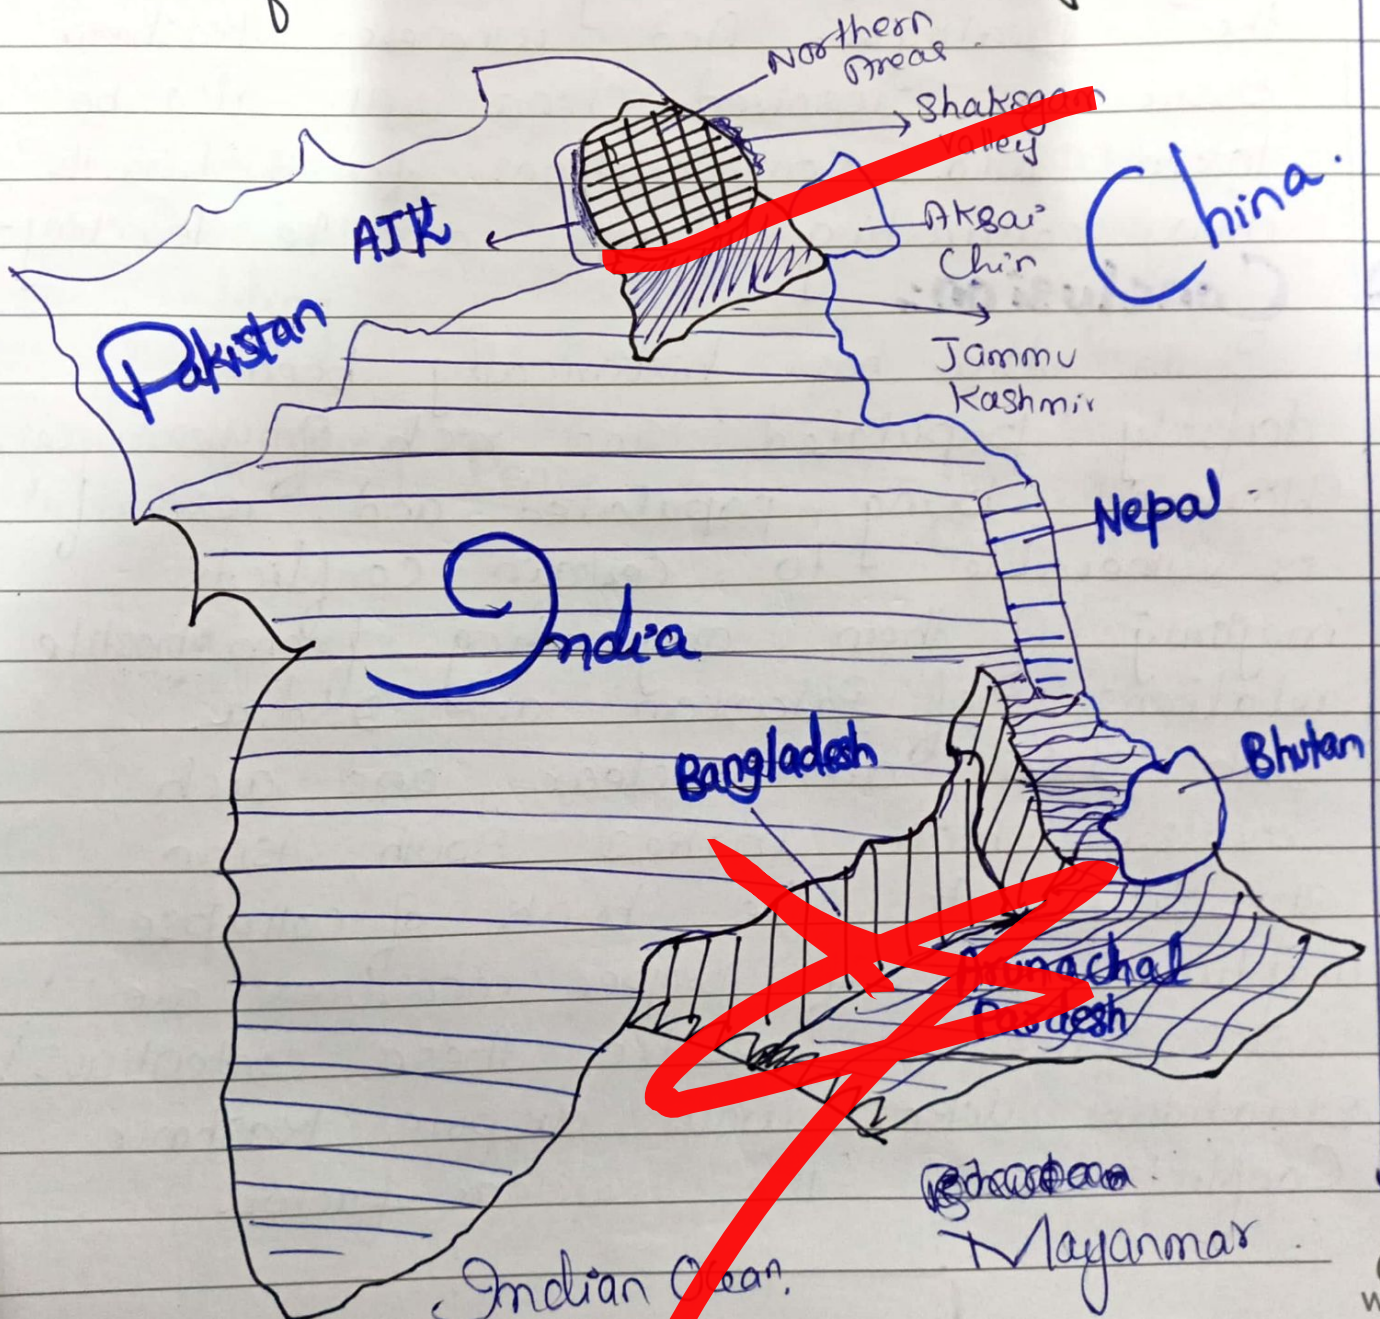 Northern
Areas.
Shaksgam
Valley
China.
AJK
Aksai
Chin
Pakistan
Jammu
Kashmir
Nepal
India
Bangladesh
Bhutan
Arunachal
Pardesh
Mayanmar
Indian Ocean.